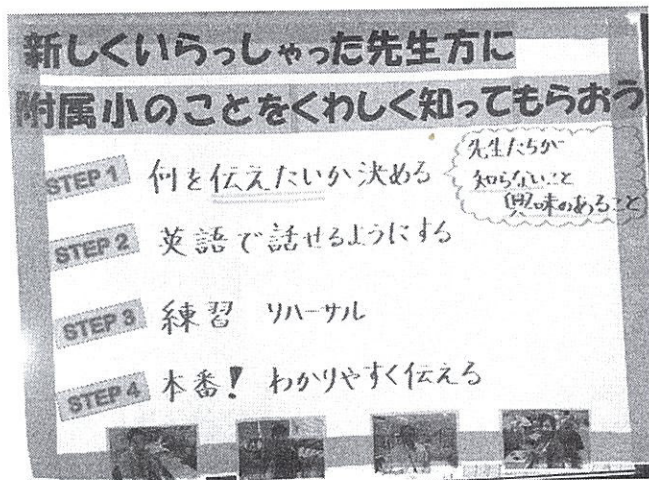 新しくいらっしゃった先生方に
附属小のことをくわしく知ってもらおう
STEP 1 何を伝えたいか決める
先生たちが
知らないこと
興味のあること
STEP 2 英語で話せるようにする
STEP 3 練習 リハーサル
STEP 4 本番! わかりやすく伝える